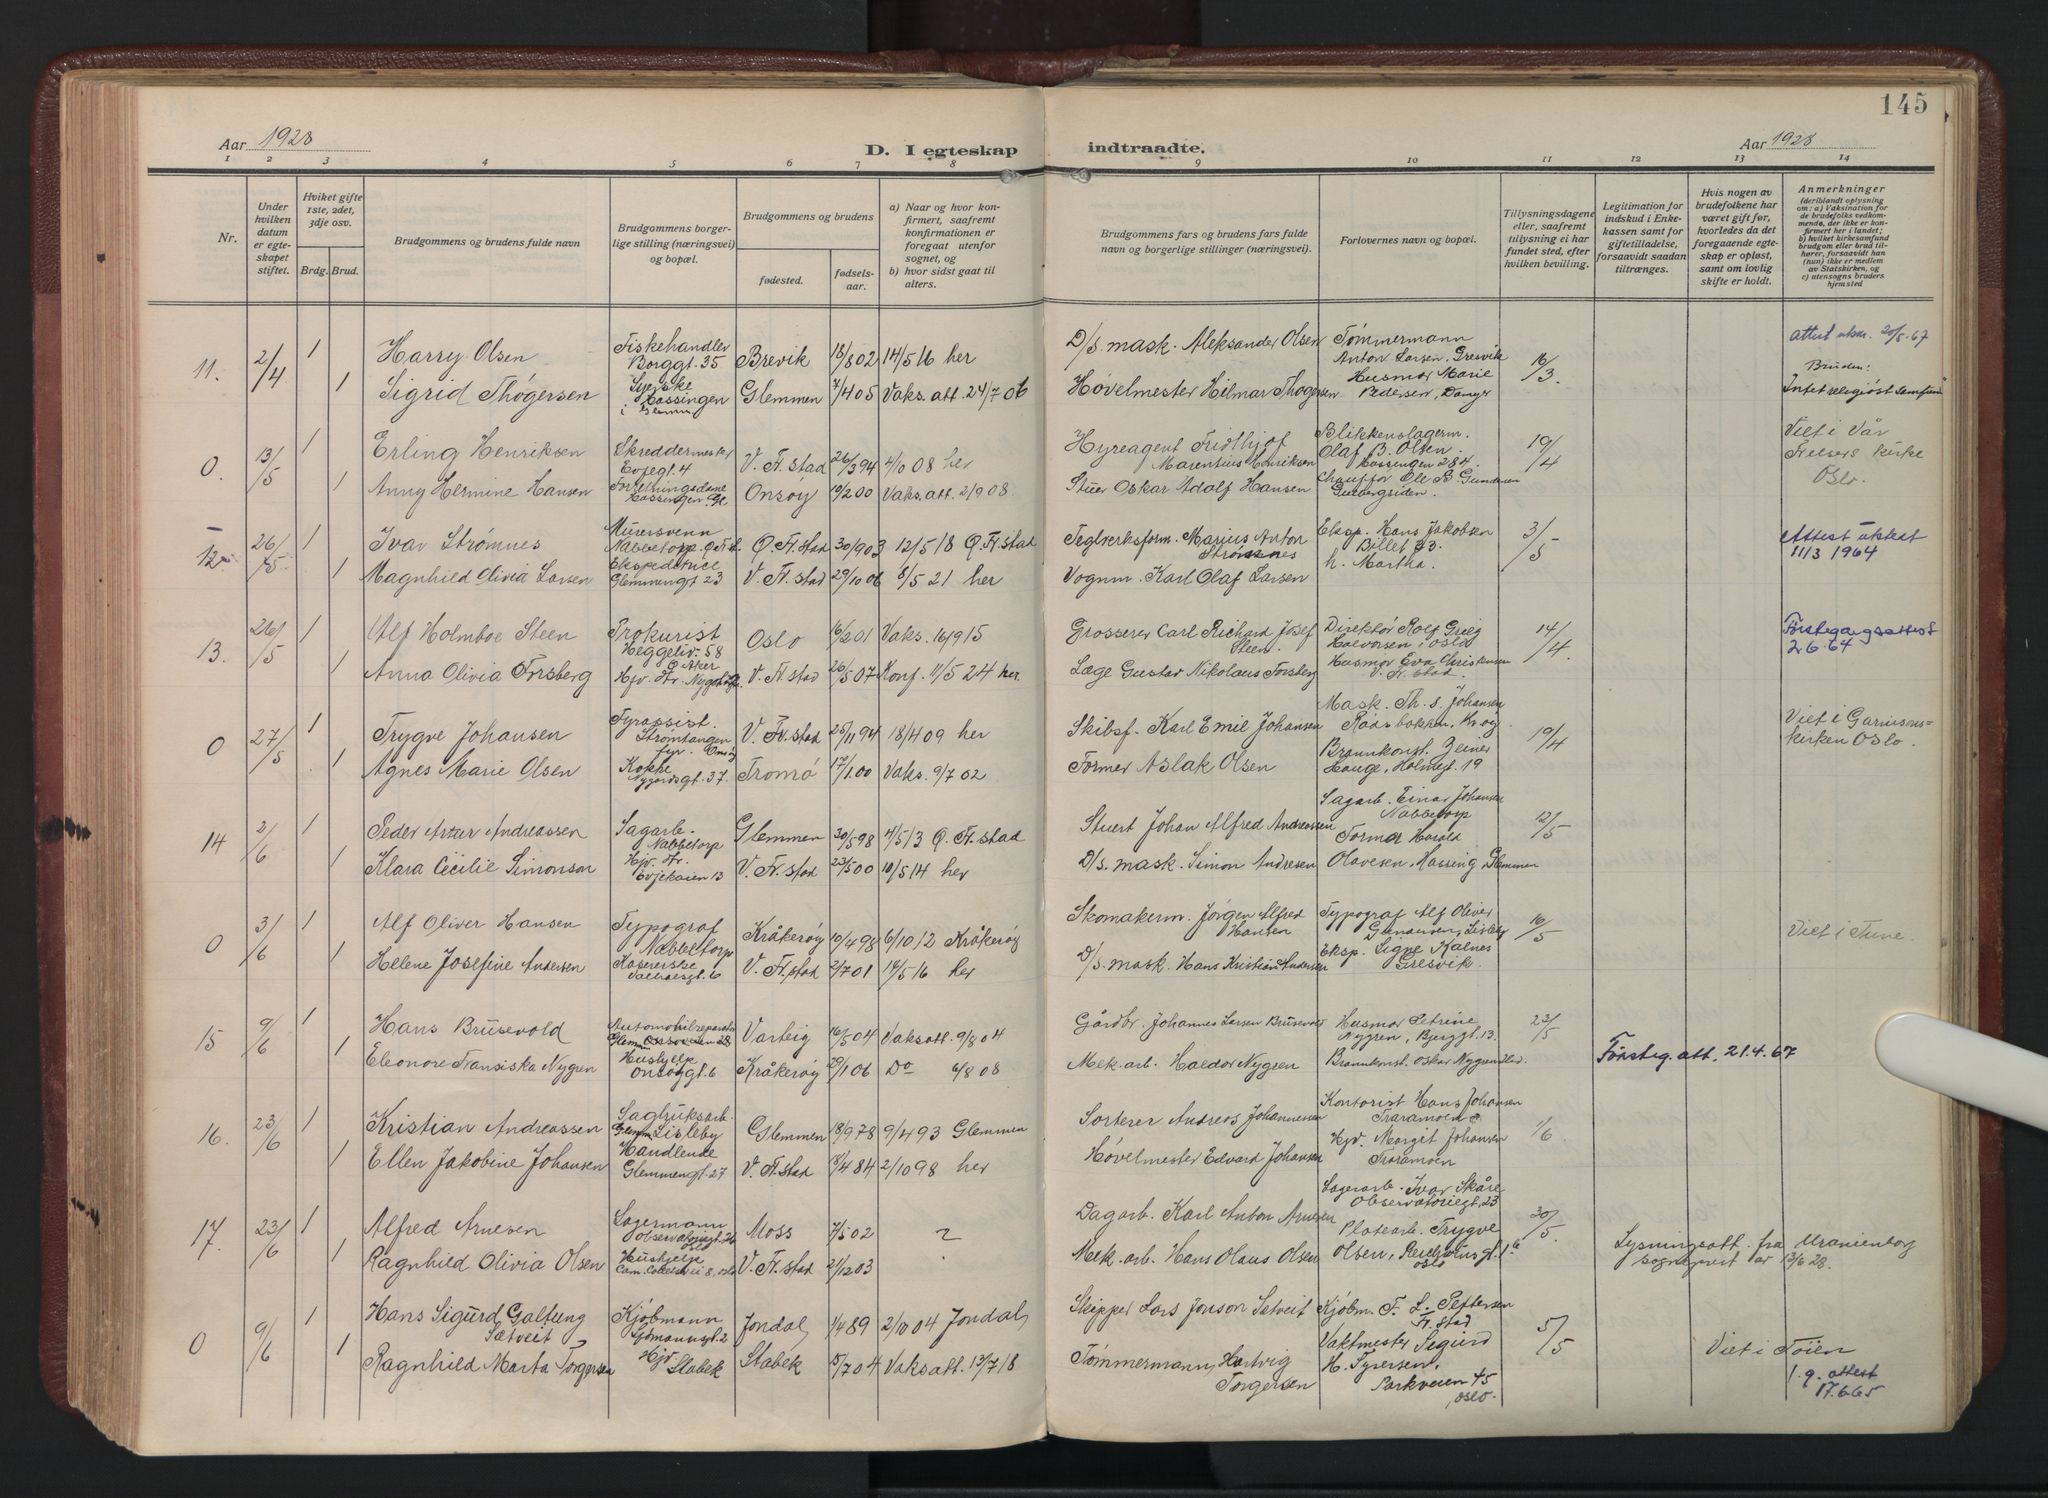 145
Aar 1928
D. I egteskap indtraadte.
Aar 1928
1 2 3 4 5 6 7 8 9 10 11 12 13 14
Nr.
Under hvilken datum er egteskapet stiftet.
Hviket gifte 1ste, 2det, 3dje osv.
Brdg. Brud.
Brudgommens og brudens fulde navn
Brudgommens borgerlige stilling (næringsvei) og bopæl.
Brudgommens og brudens
fødested.
fødselsaar.
a) Naar og hvor konfirmert, saafremt konfirmationen er foregaat utenfor sognet, og
b) hvor sidst gaat til alters.
Brudgommens fars og brudens fars fulde navn og borgerlige stillinger (næringsvei).
Forlovernes navn og bopæl.
Tillysningsdagene eller, saafremt tillysning ei har fundet sted, efter hvilken bevilling.
Legitimation for indskud i Enkekassen samt for giftetilladelse, forsaavidt saadan tiltrænges.
Hvis nogen av brudefolkene har været gift før, hvorledes da det foregaaende egteskap er opløst, samt om lovlig skifte er holdt.
Anmerkninger (deriblandt oplysning om: a) Vaksination for de brudefolks vedkommende, der ikke er konfirmert her i landet; b) hvilket kirkesamfund brudgom eller brud tilhører, forsaavidt han (hun) ikke er medlem av Statskirken, og c) utensogns bruders hjemsted
11. 2/4 1 Harry Olsen Fiskehandler Borggt. 35 Brevik 18/8 02 14/5 16 her D/s. mask. Aleksander Olsen Tømmermann Anton Larsen, Gresvik 16/3 Attest utst. 20/5.67
1 Sigrid Thøgersen Syerske Hassingen i Glemmen Glemmen 7/4 05 Vaks. att. 24/7 06 Høvelmester Hilmar Thøgersen Husmor Marie Pedersen, Bruden: Intet religiøst samfund
0. 13/5 1 Erling Henriksen Skreddermester Evjegt. 4 V. Fr.stad 26/3 94 4/10 08 her Hyreagent Fridthjof Marentius Henriksen Blikkenslagerm. Olaf B. Olsen Hassingen 284. 19/4 Viet i Vår Frelsers kirke Oslo.
Anny Hermine Hansen Forretningsdame Hassingen Gl. Onsøy 19/2 00 Vaks. att. 2/9 08. Stuer Oskar Adolf Hansen Chauffør Ole B. Gundersen
12 26/5 1 Ivar Strømnes Murersvenn Nabbetorp Ø. Fr.st. Ø. Fr.stad 30/9 03 12/5 18 Ø. Fr.stad Teglverksform. Marius Anton Strømnes Eksp. Hans Jakobsen 3/5 Attest utstest 11/3 1964
1 Magnhild Olivia Larsen Ekspeditrice Glemmengt 23 V. Fr.stad 29/10 06 8/5 21 her Vognm. Karl Olaf Larsen h. Martha.
13. 26/5 1 Alf Holmboe Steen Prokurist Heggeliv. 58 Ø. Aker Oslo 16/2 01 Vaks. 16/9 15 Grosserer Carl Richard Josef Steen Direktør Rolf Grieg Halvorsen, Oslo 14/4. Førstegangsattest 2.6.64
1 Anna Olivia Forsberg Hjv. dtr. V. Fr.stad 26/5 07 Konf. 11/5 24 her. Læge Gustav Nikolaus Forsberg Husmor Eva Christensen V. Fr.stad.
0 27/5 1 Trygve Johansen Fyrassist. Strømtangen fyr. Onsøy V. Fr.stad 25/11 94 18/4 09 her Skibsf. Karl Emil Johansen Mask. Th. S. Johansen Rødsbakken, Krog 19/4 Viet i Garnisonskirken Oslo.
1 Agnes Marie Olsen Kokke Nygårdsgt. 37. Tromsø 17/1 00 Vaks. 9/7 02 Former Aslak Olsen Brannkonst. Einer Hauge, Holmegt. 19
14 2/6 1 Peder Artur Andreassen Sagarb. Nabbetorp Glemmen 30/5 98 4/5 13 Ø. Fr.stad Stuert Johan Alfred Andreassen Sagarb. Einar Johansen Nabbetorp 12/5
1 Klara Cecilie Simonsen Hjv. dtr. Evjekaien 13 V. Fr.stad 23/5 00 10/5 14 her D/s. mask. Simon Andresen Former Harald Olavesen, Hassing. Glemmen
0 3/6 1 Alf Oliver Hansen Typograf Nabbetorp Kråkerøy 10/4 98 6/10 12 Kråkerøy Skomakerm. Jørgen Alfred Hansen Typograf Alf Oliver Gundersen, Lisleby 16/5 Viet i Tune.
1 Helene Josefine Andersen Kasererske V. Fr.stad 2/7 01 14/5 16 her D/s. mask. Hans Kristian Andersen Eksp. Signe Kalnes Gresvik.
15 9/6 1 Hans Brusevold Automobilreparatør Varteig 16/5 04 Vaksatt. 9/8 04 Gårdbr. Johannes Larsen Brusevold Husmor Petrine Nygren, Bjerggt. 13. 23/5
1 Eleonore Fransiska Nygren Hushjelp Onsøygt. 6 Kråkerøy 29/1 06 Do 6/8 08 Mek. arb. Haldor Nygren Brannkonst. Oskar Nygren Førsteg. att. 21.4.67
16. 23/6 1 Kristian Andreassen Sagbruksarb. Glemm. Lisleby Glemmen 18/9 78 9/4 93 Glemmen Sorterer Andreas Johannesen Kontorist Hans Johansen Traramoen 1/6
1 Ellen Jakobine Johansen Handlende Glemmengt. 27 V. Fr.stad 18/4 84 2/10 98 her Høvelmester Edvard Johansen Hjv. Margit Johansen Traramoen
17. 23/6 1 Alfred Arnesen Lagermann Observatoriegt. 23 Oslo Moss 7/5 02 ? Dagarb. Karl Anton Arnesen Lagerarb. Ivar Skåre Observatoriegt. 23 30/5. Lysningsatt. fra Uranienborg sogneprest av 13/6 28.
1 Ragnhild Olivia Olsen Hushjelp Cam. Collettsv. 8, Oslo V. Fr.stad 2/12 03 Mek. arb. Hans Olaus Olsen Platearb. Trygve Olsen, Oslo
0 9/6 1 Hans Sigurd Galtung Sætveit Kjøbmann Jondal 1/4 89 2/10 04 Jondal Skipper Lars Jonson Setveit Kjøbm. F. L. Pettersen Fr.stad 5/5 Viet i Tøien
1 Ragnhild Marta Torgersen Hjv Stabek Stabek 15/7 04 Vaksatt. 13/7 18 Tømmermann Hartvig Torgersen Vaktmester Sigurd H. Syversen, Parkveien 45, Oslo. 1. g. attest 17.6.65